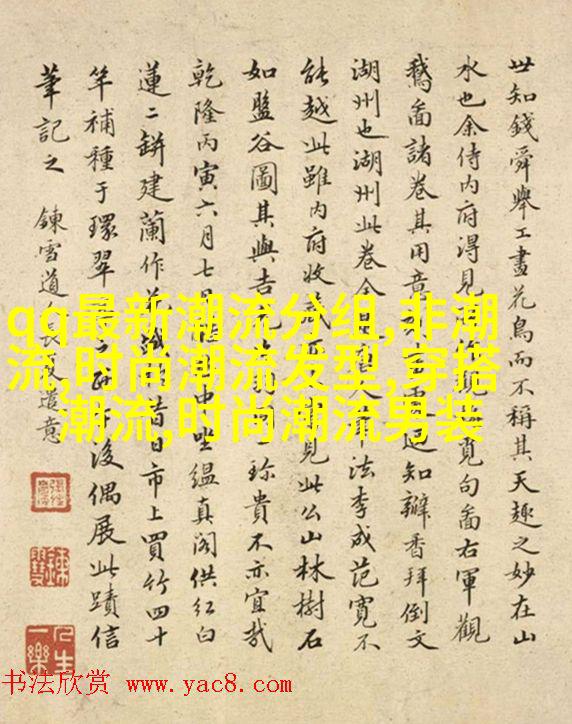 世知錢舜舉工畫花鳥而不稱其天趣之妙在山
水也余侍内府得見覽句畵右軍觀
鵝畵諸卷其用意知瓣香拜倒文
湖州也湖州此卷余法李成范寬不
能越此雖内府收藏見此公山林樹石
如盤谷圖其與吉珍貴不亦宜哉
乾隆丙寅六月七中坐緼真閣供紅白
蓮二缾建蘭作昔日市上買竹四十
竿補種于環翠後偶展此蹟信
筆記之 鍊雪道遣意
人生一樂
qq最新潮流分组,非潮
流,时尚潮流发型,穿搭
潮流,时尚潮流男装
书法欣赏 www.yac8.com